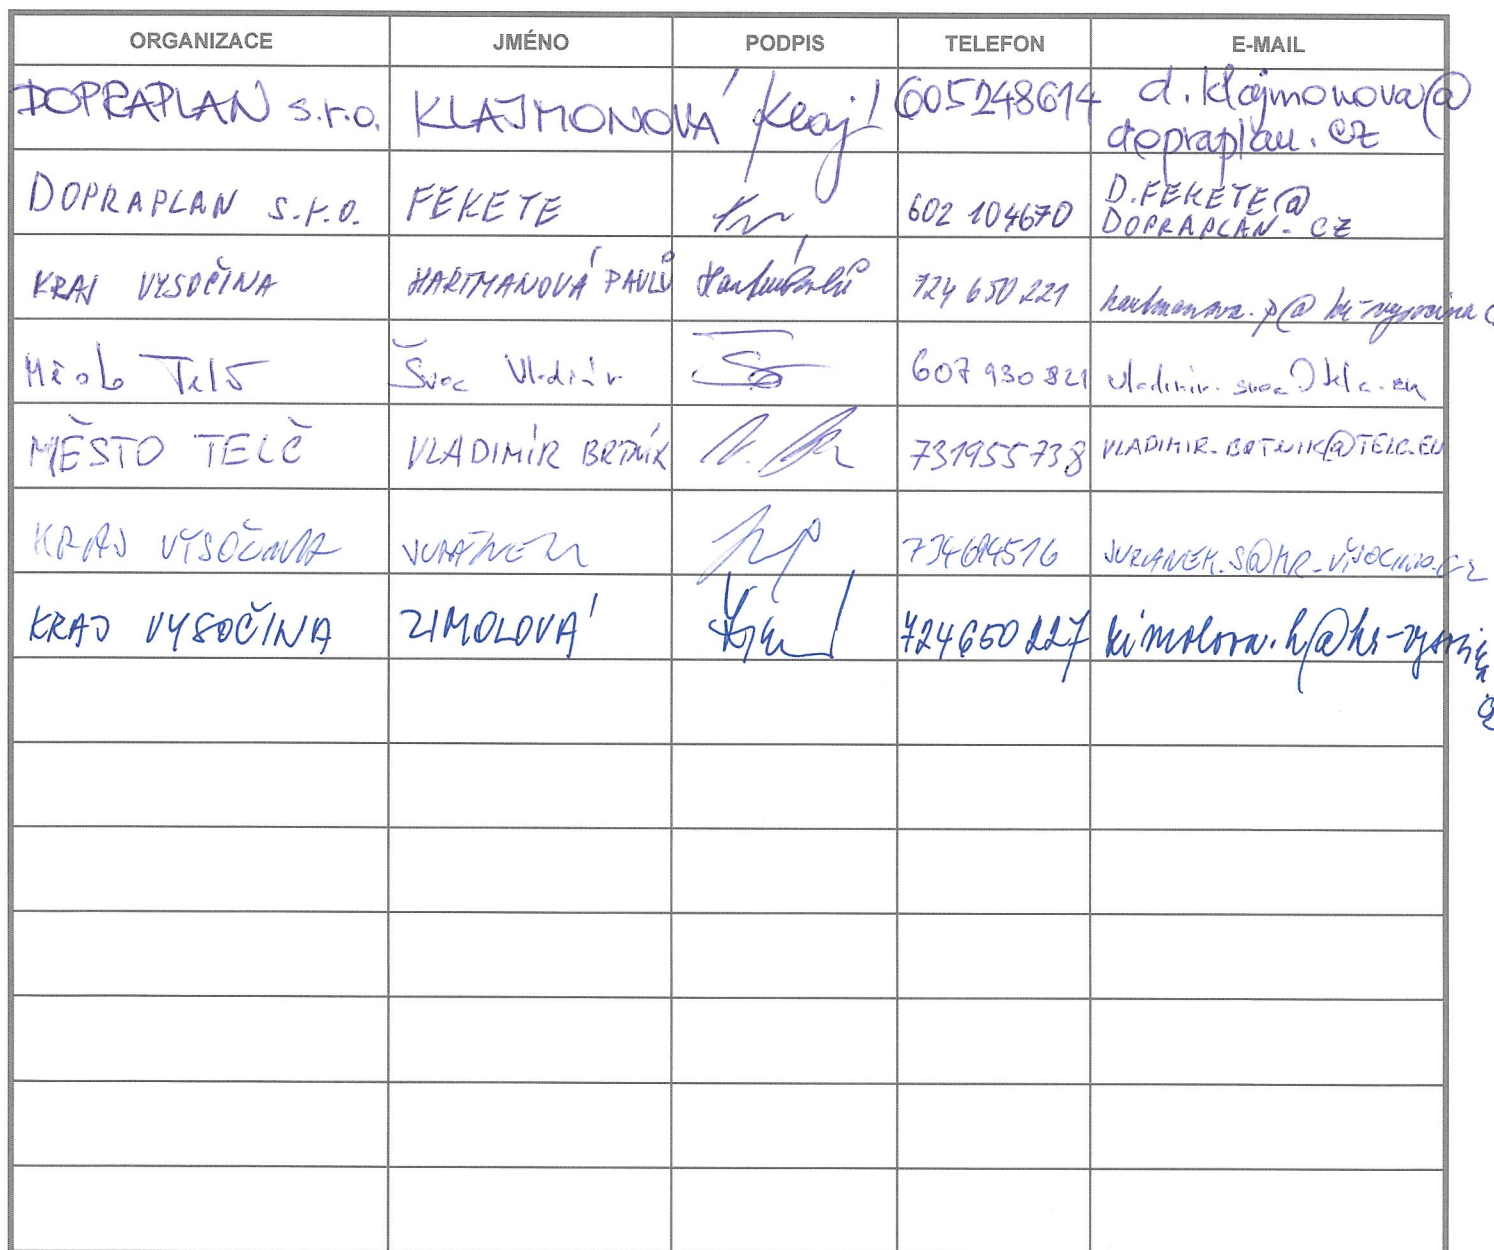 ORGANIZACE JMÉNO PODPIS TELEFON E-MAIL
DOPRAPLAN s.r.o. KLAJMONOVÁ Klaj 605248614 d.klajmonova@
dopraplan.cz
DOPRAPLAN S.R.O. FEKETE 602 104670 D.FEKETE@
DOPRAPLAN.CZ
KRAJ VYSOČINA HARTMANOVÁ PAVLŮ 724 650 221 hartmanova.p@kr-vysocina
Město Telč Švec Vladimír 607 930 821 vladimir.svec@telc.eu
MĚSTO TELČ VLADIMÍR BRTNÍK 731955738 VLADIMIR.BRTNIK@TELC.EU
KRAJ VYSOČINA JURÁNEK JURANEK.S@KR-VYSOCINA.CZ
KRAJ VYSOČINA ZIMOLOVÁ 724650227 zimolova.h@kr-vysocina
cz